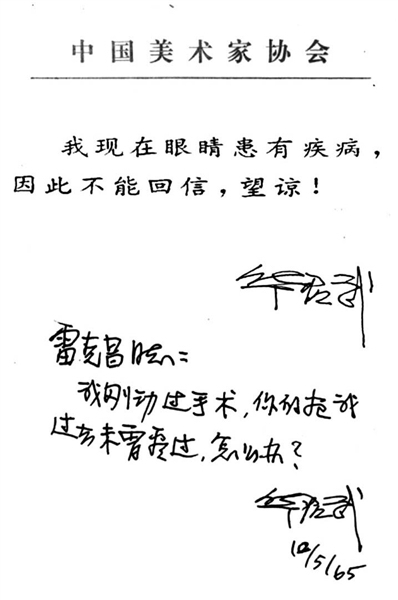 中国美术家协会
我现在眼睛患有疾病，
因此不能回信，望谅！
华君武
雷克昌同志：
我刚动过手术，你的我
过去未过，怎么办？
华君武
/5/65